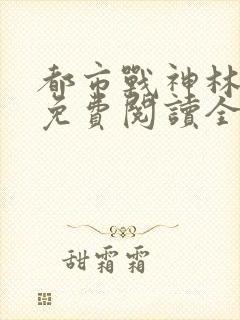 都市戰神林
免費閱讀全
甜霜霜